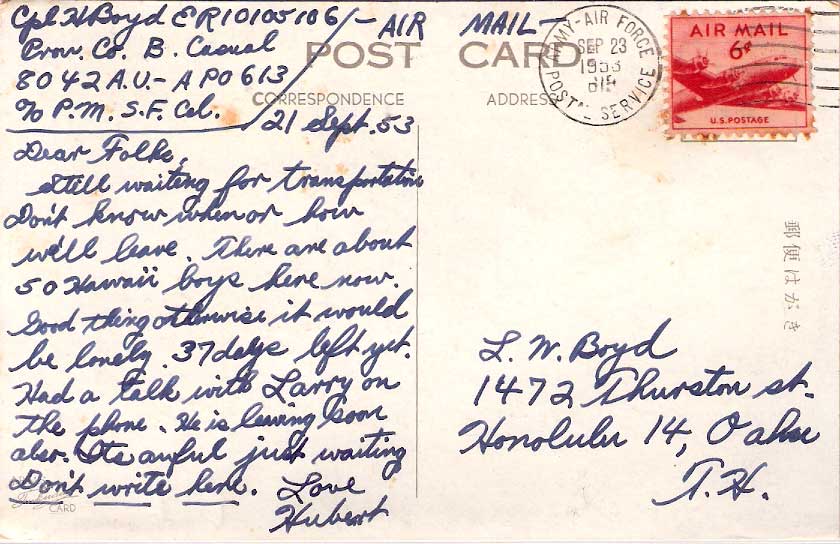 Cpl H Boyd ER10105106
Prov. Co. B. Casual
8042 A.U. - APO 613
c/o P.M. S.F. Cal.
- AIR MAIL -
POST CARD
CORRESPONDENCE
ADDRESS
ARMY-AIR FORCE
POSTAL SERVICE
SEP 23
1953
AIR MAIL
6¢
U.S. POSTAGE
21 Sept. 53
Dear Folks,
Still waiting for transportation
Don't know when or how
we'll leave. There are about
50 Hawaii boys here now.
Good thing otherwise it would
be lonely. 37 days left yet.
Had a talk with Larry on
the phone. He is leaving soon
also. Its awful just waiting
Don't write here. Love
Hubert
CARD
郵便はがき
L. W. Boyd
1472 Thurston st.
Honolulu 14, Oahu
T.H.